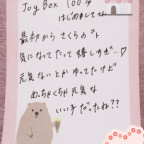 Joy Box 100
はじめまして
最初から さくらのアト
気になってたって 嬉しすぎ‥♡
元気ないとかゆってたけど
めっちゃくちゃ元気な
いい子だったね??